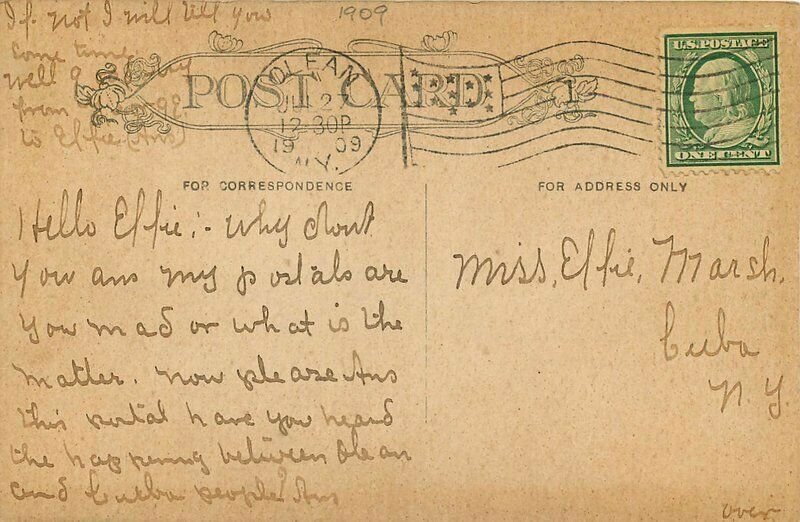 1909
If not I will tell you
some time.
Well
from
to Effie (Ans)
POST CARD
OLEAN
12-30P
1909
N.Y.
1
U.S. POSTAGE
ONE CENT
FOR CORRESPONDENCE
FOR ADDRESS ONLY
Hello Effie:- Why dont
you ans my postals are
you mad or what is the
matter. now please Ans
this postal have you heard
the happening between Olean
and Cueba people? Ans
Miss, Effie, Marsh.
Cuba
N.Y.
over